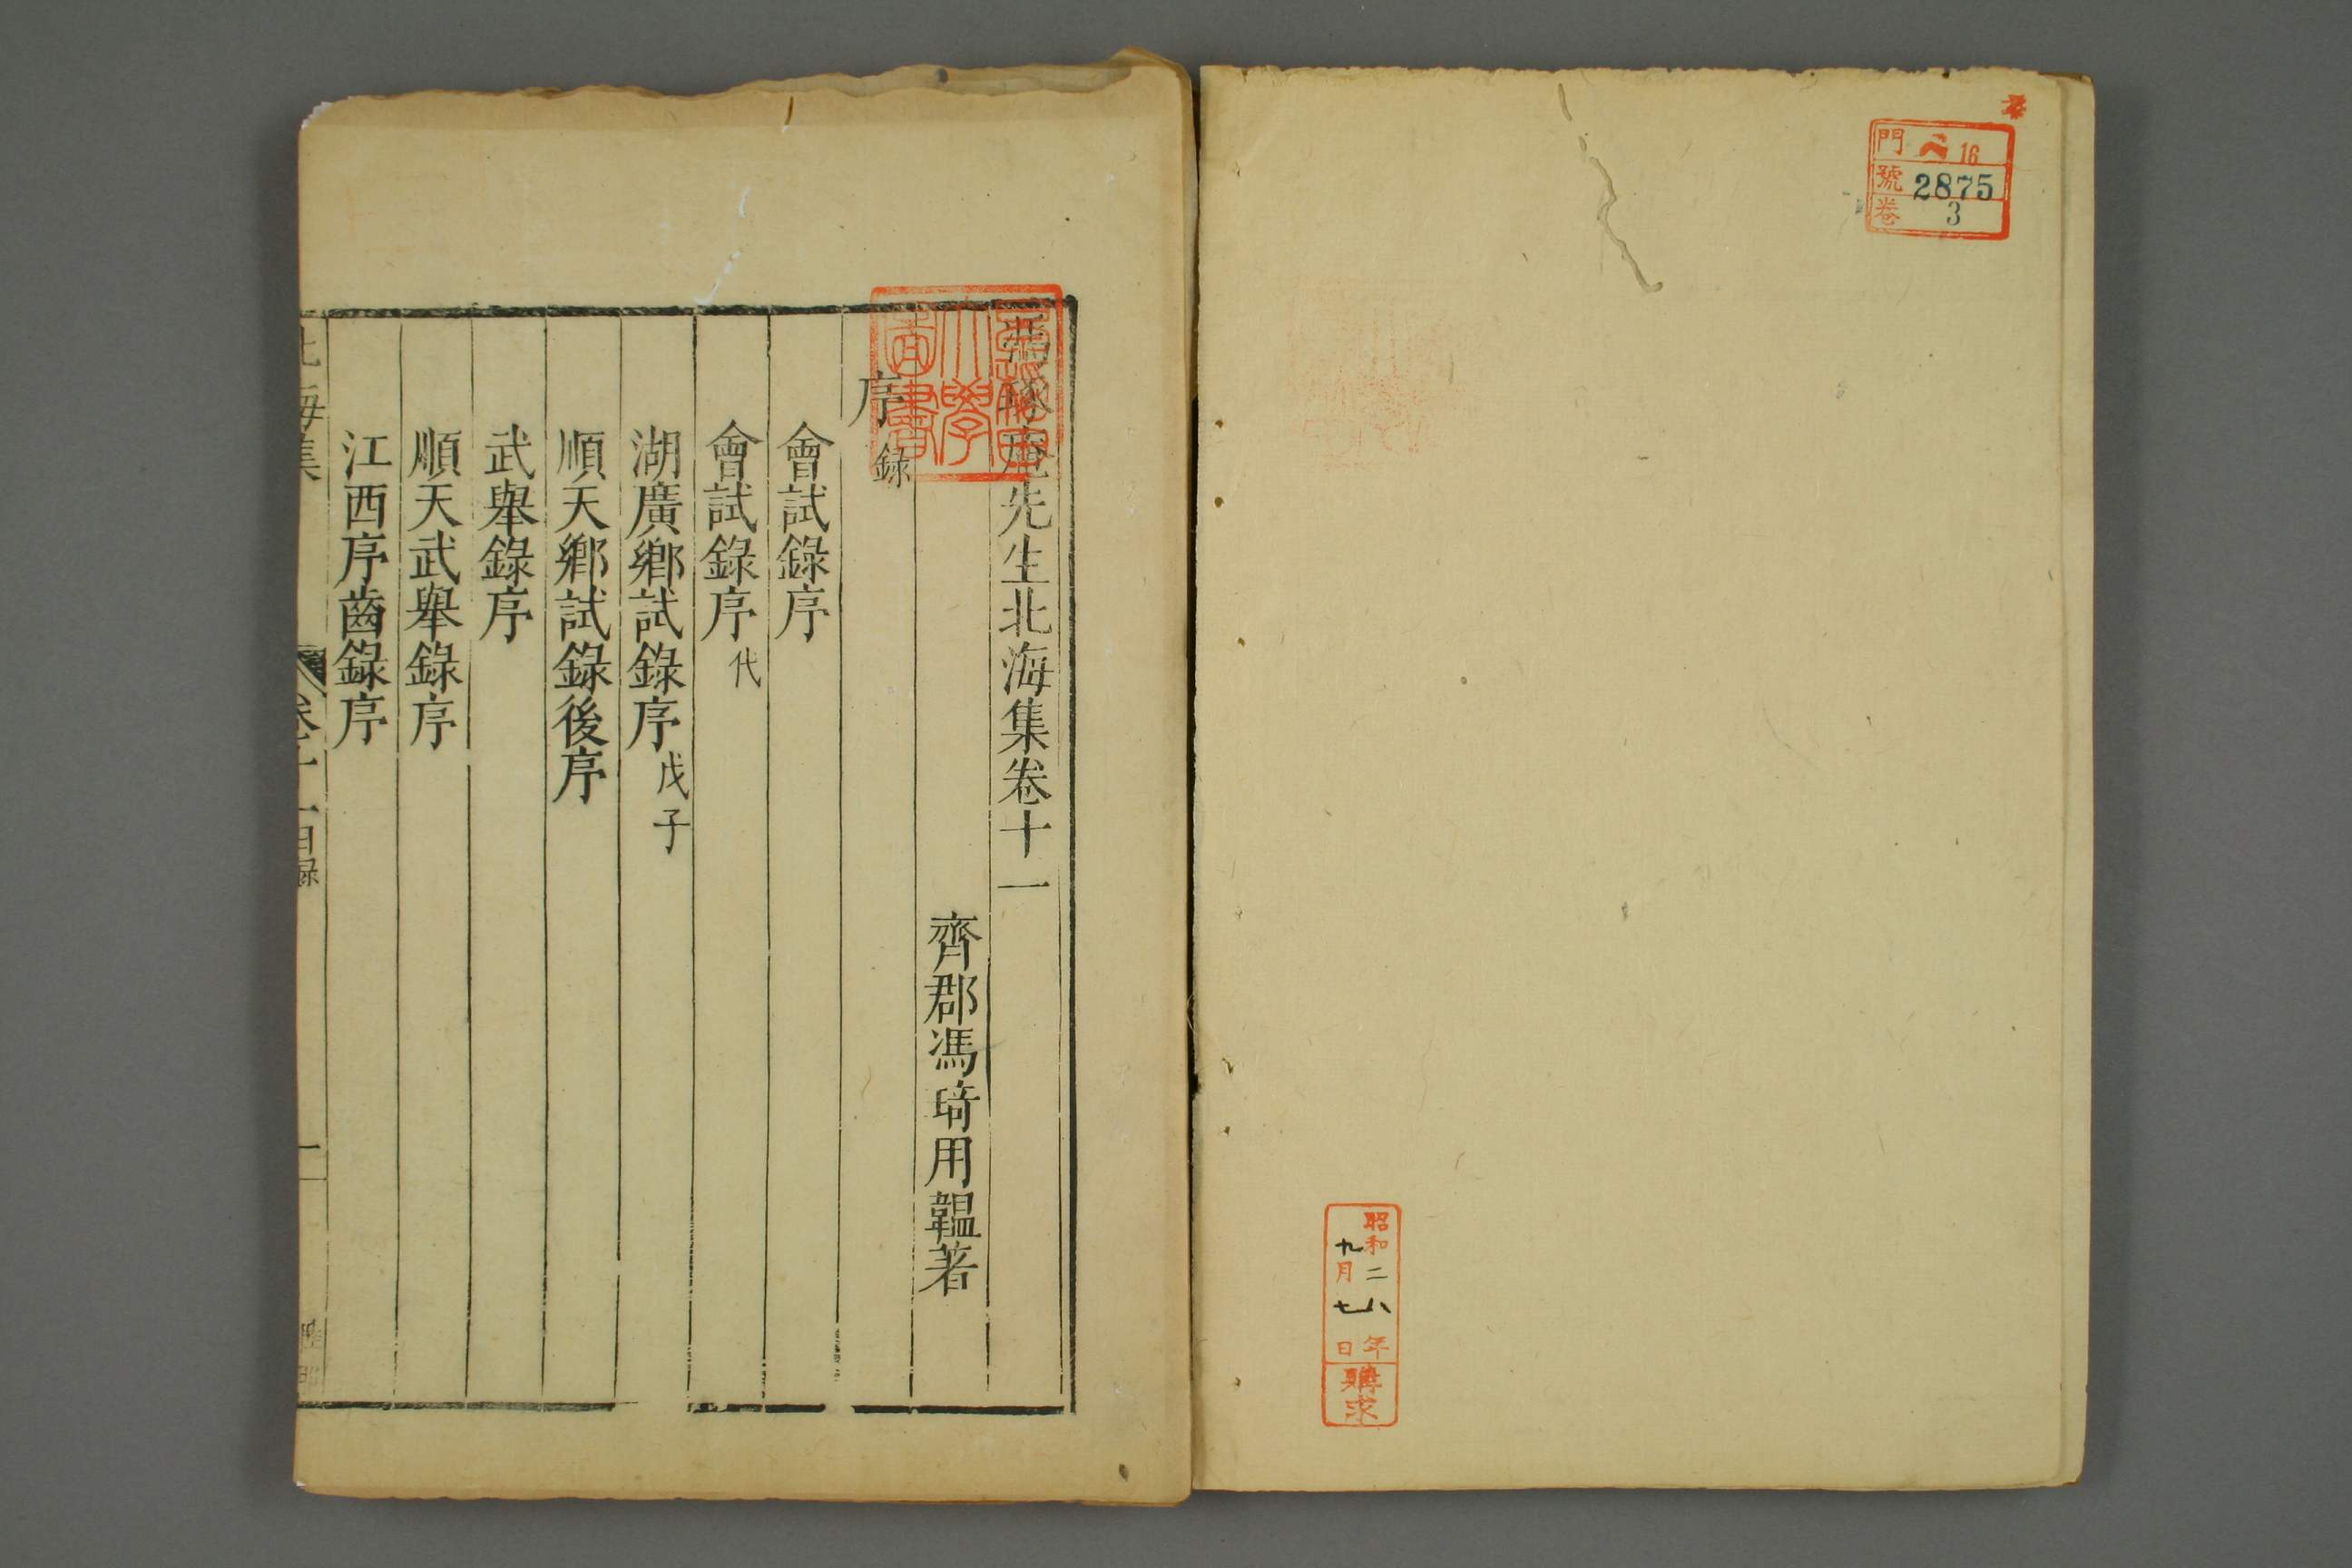 門 ヘ 16
號 2875
卷 3
昭和二八年
九月七日
購求
馮琢庵先生北海集卷十一
齊郡馮琦用韞著
序錄
會試錄序
會試錄序代
湖廣鄉試錄序戊子
順天鄉試錄後序
武舉錄序
順天武舉錄序
江西序齒錄序
北海集 卷十一目錄 一